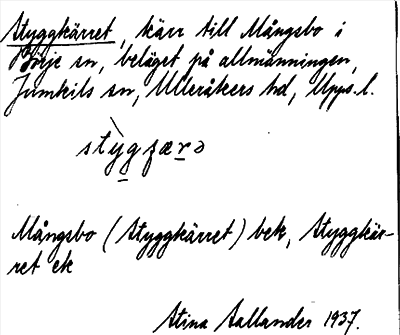 Styggkärret, kärr till Mångsbo i
Börje sn, beläget på allmänningen,
Jumkils sn, Ulleråkers hd, Upps. l.
stỳgfærə
Mångsbo (Styggkärret) bek, Styggkär-
ret ek
Stina Sallander 1937.